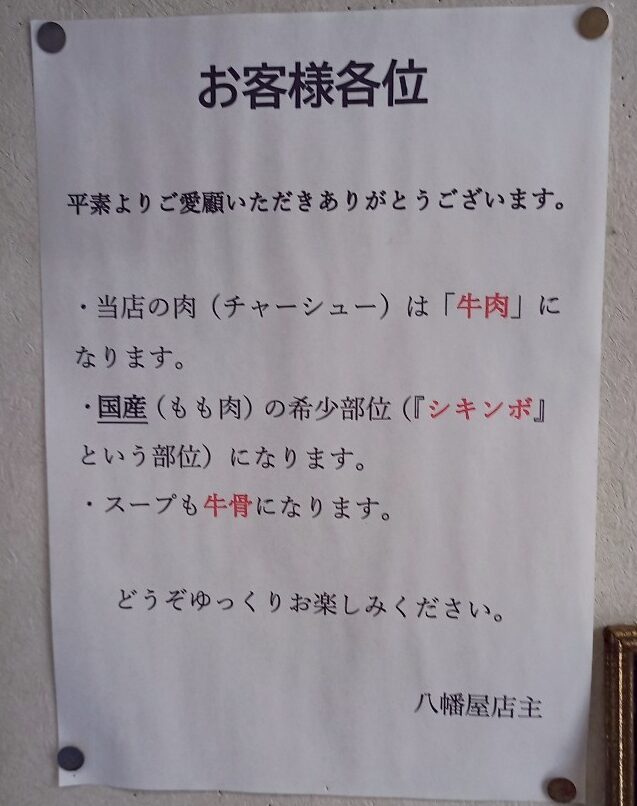 お客様各位
平素よりご愛顧いただきありがとうございます。
・当店の肉（チャーシュー）は「牛肉」に
なります。
・国産（もも肉）の希少部位（『シキンボ』
という部位）になります。
・スープも牛骨になります。
どうぞゆっくりお楽しみください。
八幡屋店主